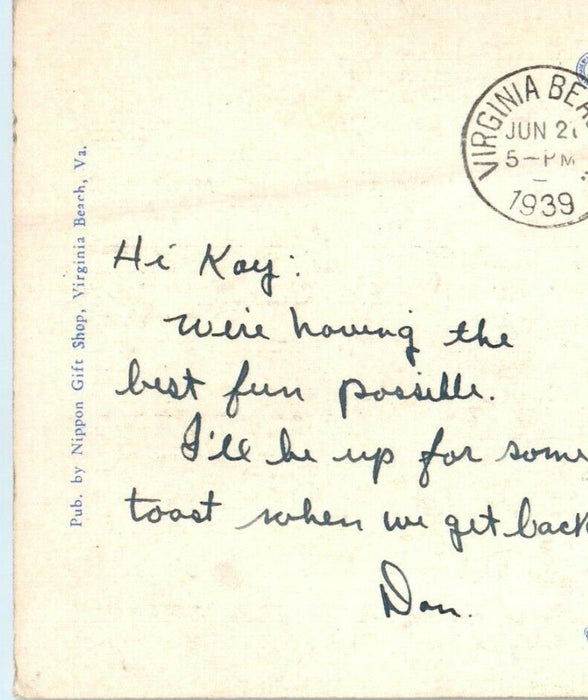 Pub. by Nippon Gift Shop, Virginia Beach, Va.
VIRGINIA BEA
JUN 2
5-PM
1939
Hi Kay:
We're having the
best fun possible.
I'll be up for some
toast when we get back
Don.